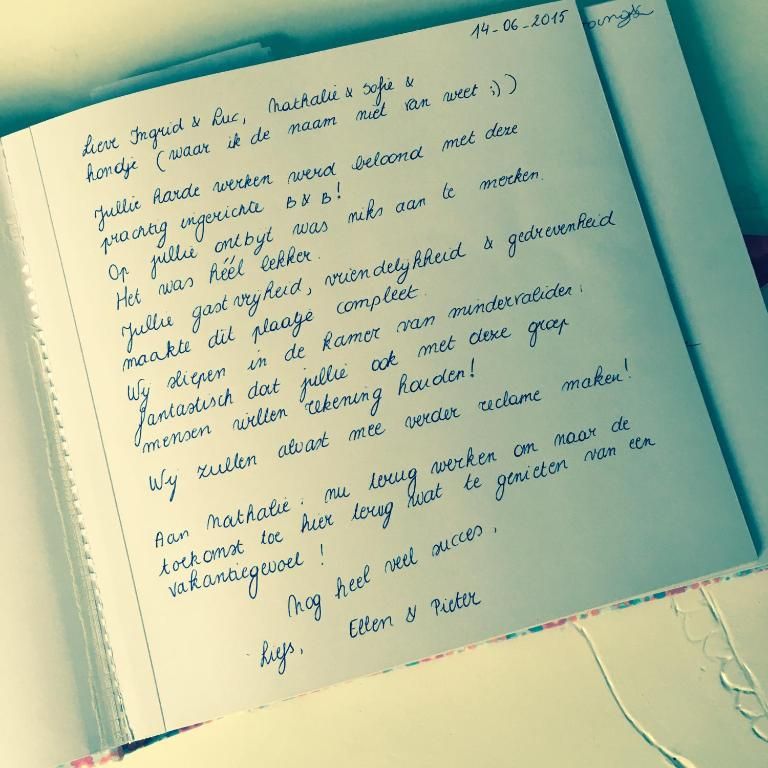 14-06-2015
Lieve Ingrid & Luc, Nathalie & Sofie &
hondje (waar ik de naam niet van weet ;))
Jullie harde werken werd beloond met deze
prachtig ingerichte B&B!
Op jullie ontbyt was niks aan te merken.
Het was héél lekker.
Jullie gastvrijheid, vriendelykheid & gedrevenheid
maakte dit plaatje compleet.
Wy sliepen in de kamer van mindervaliden,
fantastisch dat jullie ook met deze groep
mensen willen rekening houden!
Wy zullen alvast mee verder reclame maken!
Aan Nathalie: nu terug werken om naar de
toekomst toe hier terug wat te genieten van een
vakantiegevoel!
Nog heel veel succes,
Liefs, Ellen & Pieter